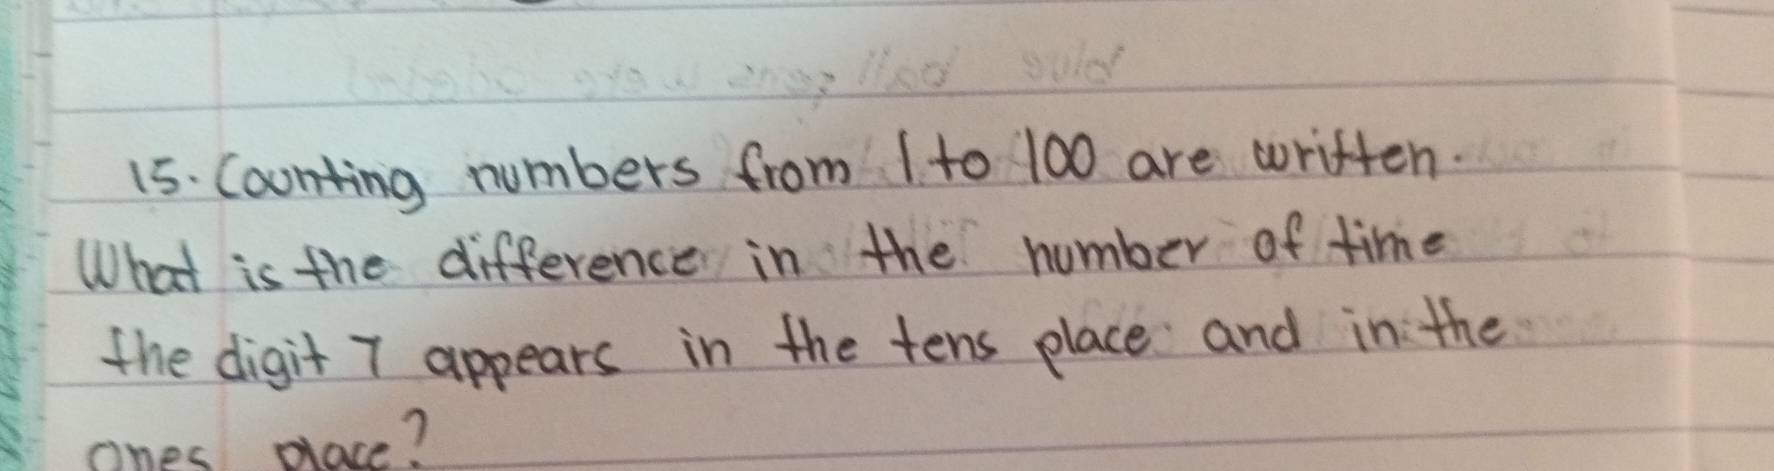 15. Counting numbers from 1 to 100 are written.
What is the difference in the number of time
the digit 7 appears in the tens place and in the
ones place?